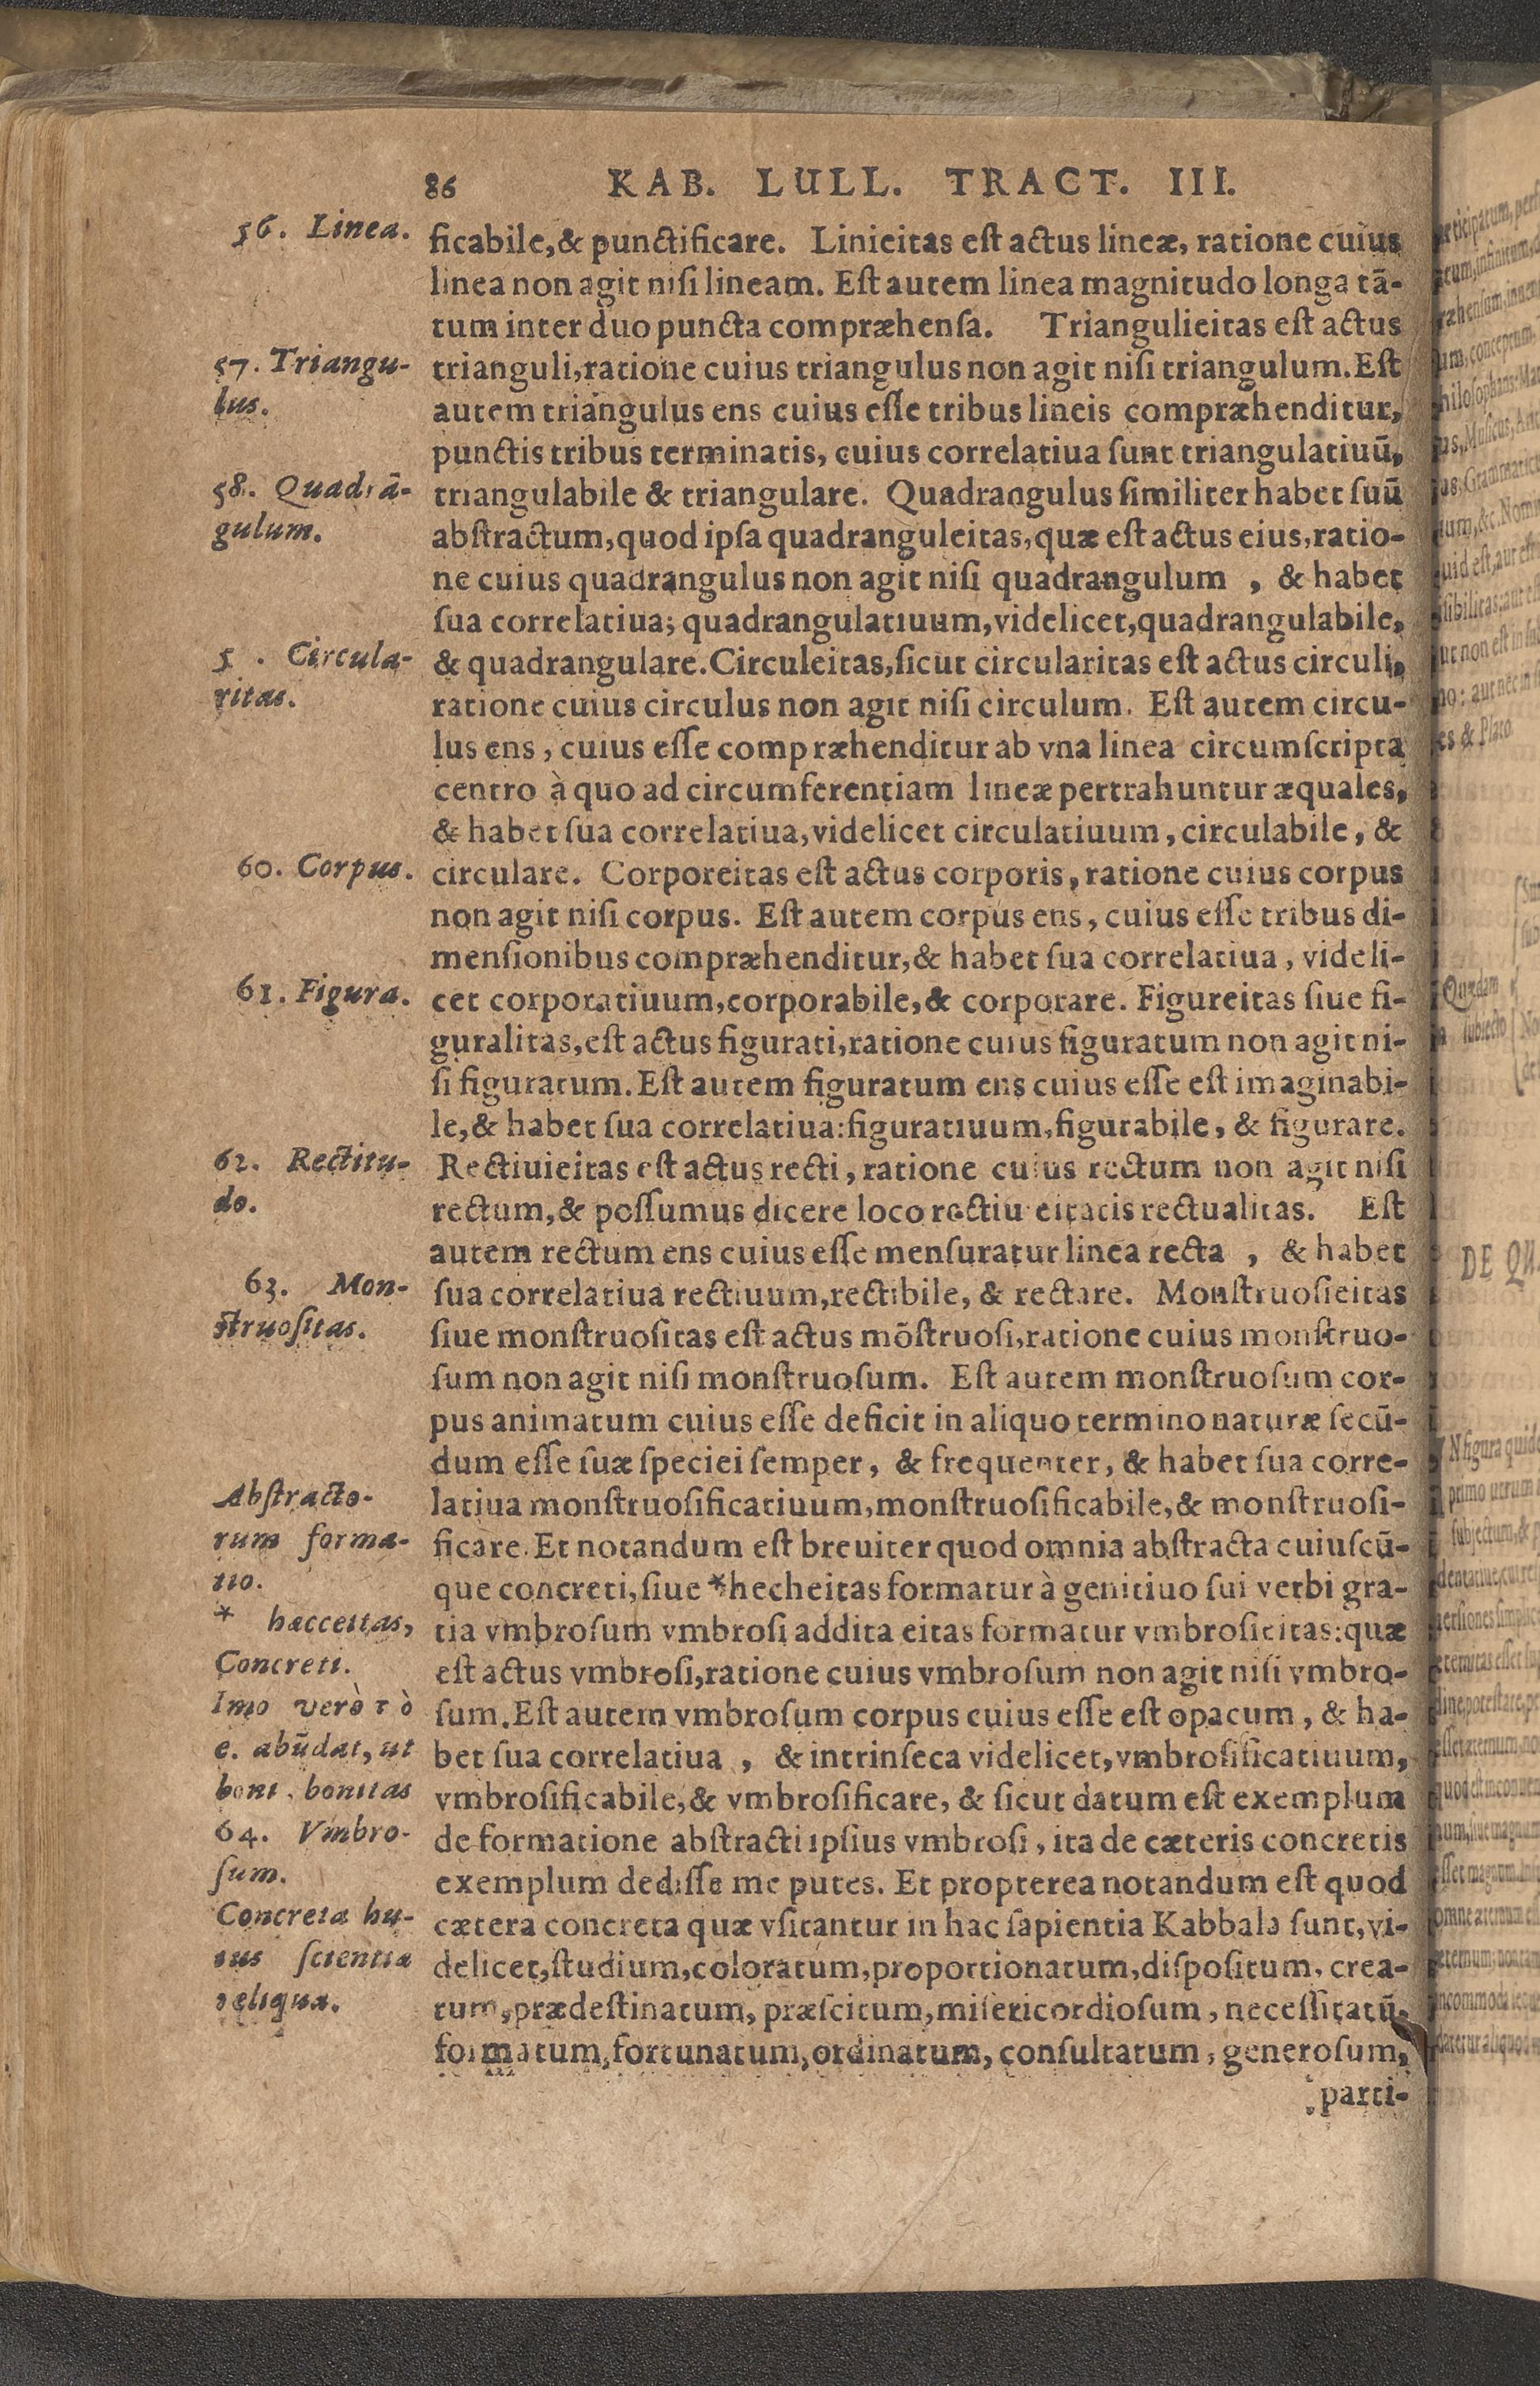 86 KAB. LULL. TRACT. III.
56. Linea.
ficabile,& punctificare. Linieitas eſt actus lineæ, ratione cuius
linea non agit niſi lineam. Eſt autem linea magnitudo longa tā-
tum inter duo puncta compræhenſa. Triangulieitas eſt actus
57. Triangu-
lus.
trianguli,ratione cuius triangulus non agit niſi triangulum. Eſt
autem triangulus ens cuius eſſe tribus lineis compræhenditur,
punctis tribus terminatis, cuius correlatiua ſunt triangulatiuū,
58. Quadrā-
gulum.
triangulabile & triangulare. Quadrangulus ſimiliter habet ſuū
abſtractum,quod ipſa quadranguleitas,quæ eſt actus eius,ratio-
ne cuius quadrangulus non agit niſi quadrangulum , & habet
ſua correlatiua; quadrangulatiuum,videlicet,quadrangulabile,
5 . Circula-
ritas.
& quadrangulare.Circuleitas,ſicut circularitas eſt actus circuli,
ratione cuius circulus non agit niſi circulum. Eſt autem circu-
lus ens , cuius eſſe compræhenditur ab vna linea circumſcripta
centro à quo ad circumferentiam lineæ pertrahuntur æquales,
& habet ſua correlatiua,videlicet circulatiuum, circulabile, &
60. Corpus.
circulare. Corporeitas eſt actus corporis, ratione cuius corpus
non agit niſi corpus. Eſt autem corpus ens, cuius eſſe tribus di-
menſionibus compræhenditur,& habet ſua correlatiua, videli-
61. Figura.
cet corporatiuum,corporabile,& corporare. Figureitas ſiue fi-
guralitas,eſt actus figurati,ratione cuius figuratum non agit ni-
ſi figuratum. Eſt autem figuratum ens cuius eſſe eſt imaginabi-
le,& habet ſua correlatiua:figuratiuum,figurabile, & figurare.
62. Rectitu-
do.
Rectiuieitas eſt actus recti, ratione cuius rectum non agit niſi
rectum,& poſſumus dicere loco rectiu eitatis rectualitas. Eſt
autem rectum ens cuius eſſe menſuratur linea recta , & habet
63. Mon-
ſtruoſitas.
ſua correlatiua rectiuum,rectibile, & rectare. Monſtruoſieitas
ſiue monſtruoſitas eſt actus mōſtruoſi,ratione cuius monſtruo-
ſum non agit niſi monſtruoſum. Eſt autem monſtruoſum cor-
pus animatum cuius eſſe deficit in aliquo termino naturæ ſecū-
dum eſſe ſuæ ſpeciei ſemper, & frequenter, & habet ſua corre-
Abſtracto-
rum forma-
tio.
latiua monſtruoſificatiuum,monſtruoſificabile,& monſtruoſi-
ficare. Et notandum eſt breuiter quod omnia abſtracta cuiuſcū-
que concreti, ſiue *hecheitas formatur à genitiuo ſui verbi gra-
* hæcceitas,
Concreti.
Imo verò τò
e. abūdat, ut
boni, bonitas
tia vmbroſum vmbroſi addita eitas formatur vmbroſieitas:quæ
eſt actus vmbroſi,ratione cuius vmbroſum non agit niſi vmbro-
ſum. Eſt autem vmbroſum corpus cuius eſſe eſt opacum, & ha-
bet ſua correlatiua , & intrinſeca videlicet,vmbroſificatiuum,
vmbroſificabile,& vmbroſificare, & ſicut datum eſt exemplum
64. Vmbro-
ſum.
de formatione abſtracti ipſius vmbroſi, ita de cæteris concretis
exemplum dediſſe me putes. Et propterea notandum eſt quod
Concreta hu-
ius ſcientiæ
reliqua.
cætera concreta quæ vſitantur in hac ſapientia Kabbala ſunt,vi-
delicet,ſtudium,coloratum,proportionatum,diſpoſitum, crea-
tum,prædeſtinatum, præſcitum,miſericordioſum, neceſſitatū,
formatum,fortunatum,ordinatum, conſultatum, generoſum,
parti-